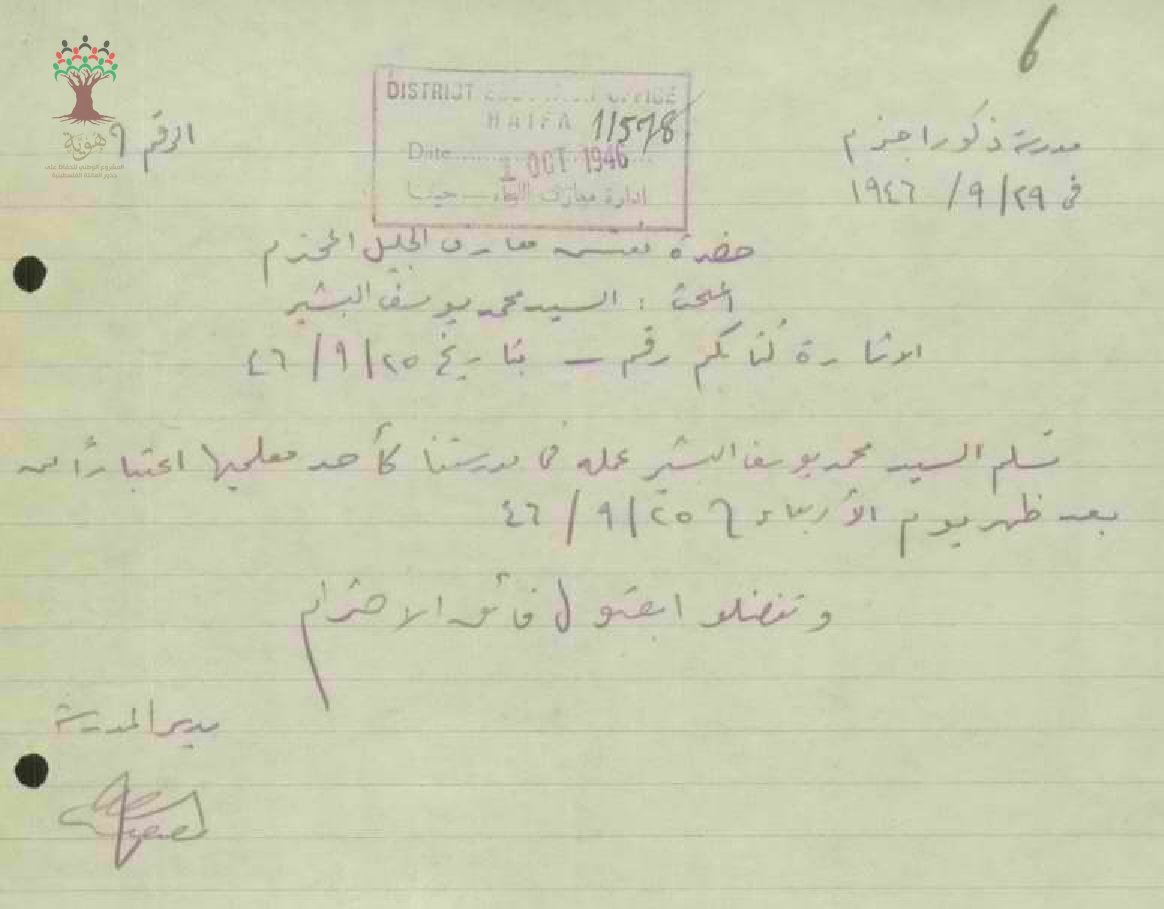 6
مدرسة ذكور اجزم
الرقم ٩
في ٢٩/٩/١٩٤٦
DISTRICT EDUCATION OFFICE
HAIFA 11578
Date 1 OCT 1946
ادارة معارف اللواء – حيفا
هوية
حضرة مفتش معارف الجليل المحترم
البحث : السيد محمد يوسف البشير
الاشارة كتابكم رقم – بتاريخ ٢٥/٩/٤٦
تسلم السيد محمد يوسف البشير عمله في مدرستنا كأحد معلميها اعتباراً من
بعد ظهر يوم الأربعاء ٢٥/٩/٤٦
وتفضلوا بقبول فائق الاحترام
مدير المدرسة